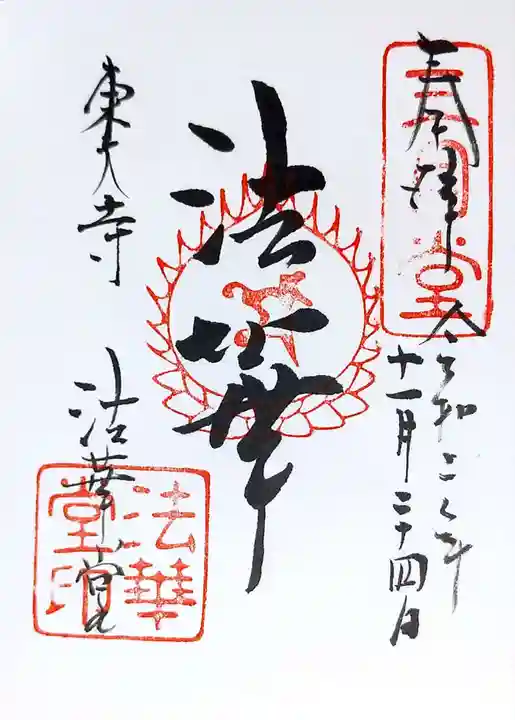 奉拝
三月堂
令和
十一月二十四日
法華
東大寺
法華堂
法華
堂印